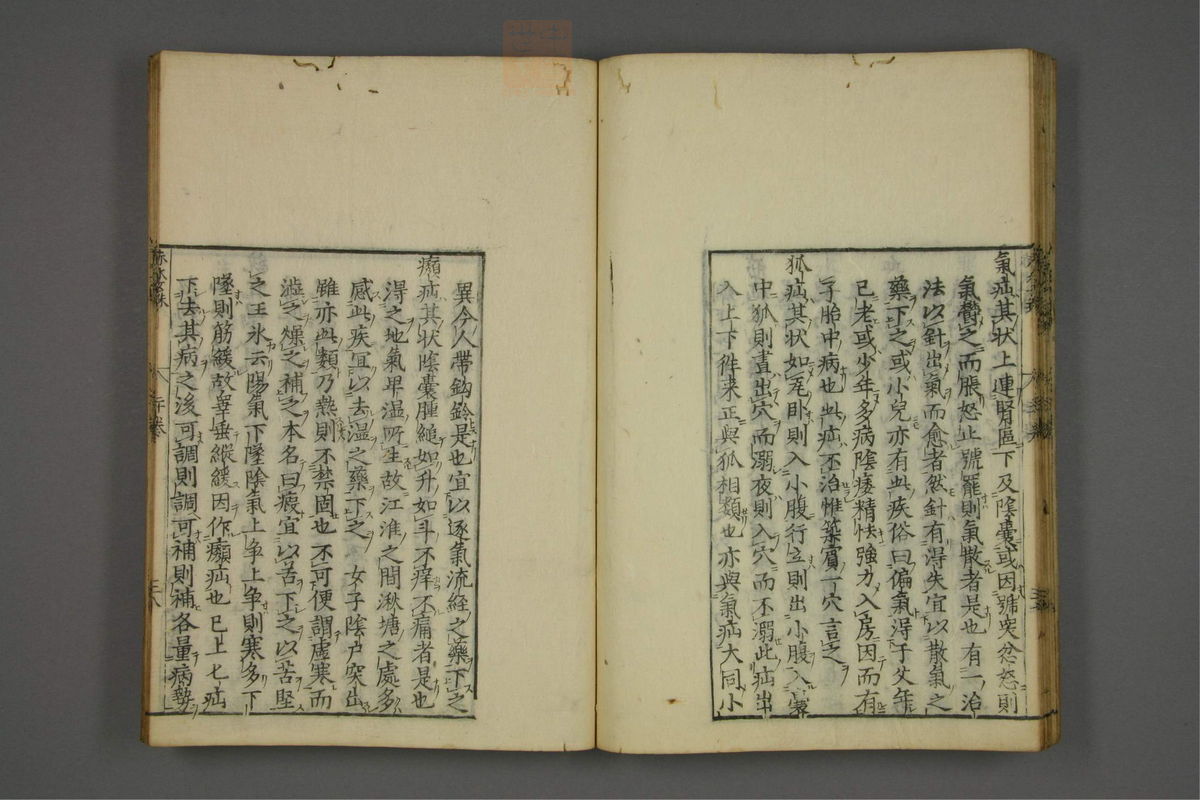 氣疝其状上連腎區下及陰嚢或因號哭忿怒則
氣鬱之而脹怒止號罷則氣散者是也有一治
法以針出氣而愈者然針有得失宜以散氣之
藥下之或小兒亦有此疾俗曰偏氣得于父年
已老或少年多病陰痿精怯強力入房因而有
子胎中病也此疝不治惟築賓一穴言之
狐疝其状如瓦卧則入小腹行立則出小腹入嚢
中狐則晝出穴而溺夜則入穴而不溺此疝出
入上下徃来正與狐相類也亦與氣疝大同小
異今人帶鈎鈴是也宜以逐氣流経之藥下之
㿗疝其状陰嚢腫縋如升如斗不痒不痛者是也
淂之地氣卑温所生故江淮之間湫塘之處多
感此疾宜以去温之藥下之 女子陰户突出
雖亦此類乃熱則不禁固也不可便謂虚寒而
澁之燥之補之本名曰瘕宜以苦下之以苦堅
之王氷云陽氣下墜陰氣上争上争則寒多下
墜則筋緩故睾垂縱緩因作㿗疝也已上七疝
下去其病之後可調則調可補則補各量病勢